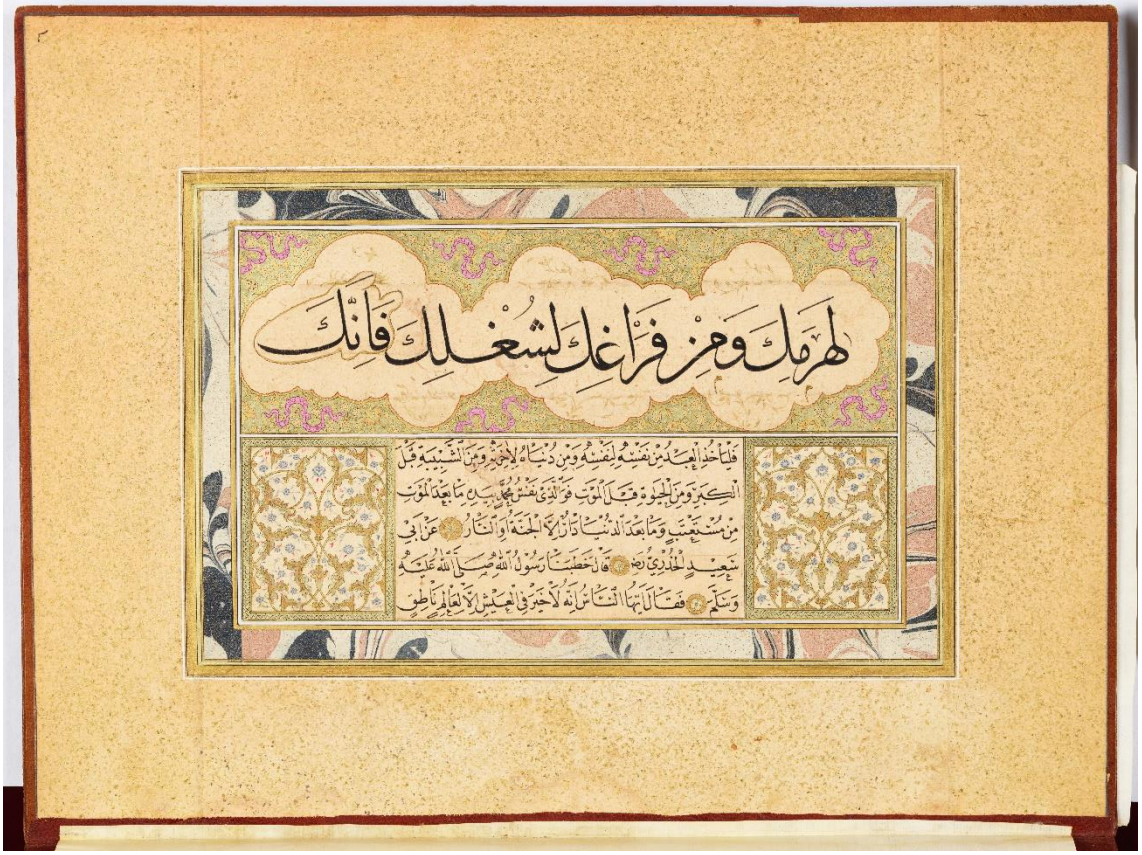 لِهَرَمِكَ وَمِنْ فَرَاغِكَ لِشُغْلِكَ فَاِنَّكَ
فَلْيَأْخُذِ الْعَبْدُ مِنْ نَفْسِهِ لِنَفْسِهِ وَمِنْ دُنْيَاهُ لِاٰخِرَتِهِ وَمِنَ الشَّبِيبَةِ قَبْلَ
الْكِبَرِ وَمِنَ الْحَيٰوةِ قَبْلَ الْمَوْتِ فَوَالَّذِي نَفْسُ مُحَمَّدٍ بِيَدِهِ مَا بَعْدَ الْمَوْتِ
مِنْ مُسْتَعْتَبٍ وَمَا بَعْدَ الدُّنْيَا دَارٌ اِلَّا الْجَنَّةُ اَوِ النَّارُ عَنْ اَبِي
سَعِيدٍ الْخُدْرِيِّ رض قَالَ خَطَبَنَا رَسُولُ اللهِ صَلَّى اللهُ عَلَيْهِ
وَسَلَّمَ فَقَالَ اَيُّهَا النَّاسُ اِنَّهُ لَا خَيْرَ فِي الْعَيْشِ اِلَّا لِعَالِمٍ نَاطِقٍ